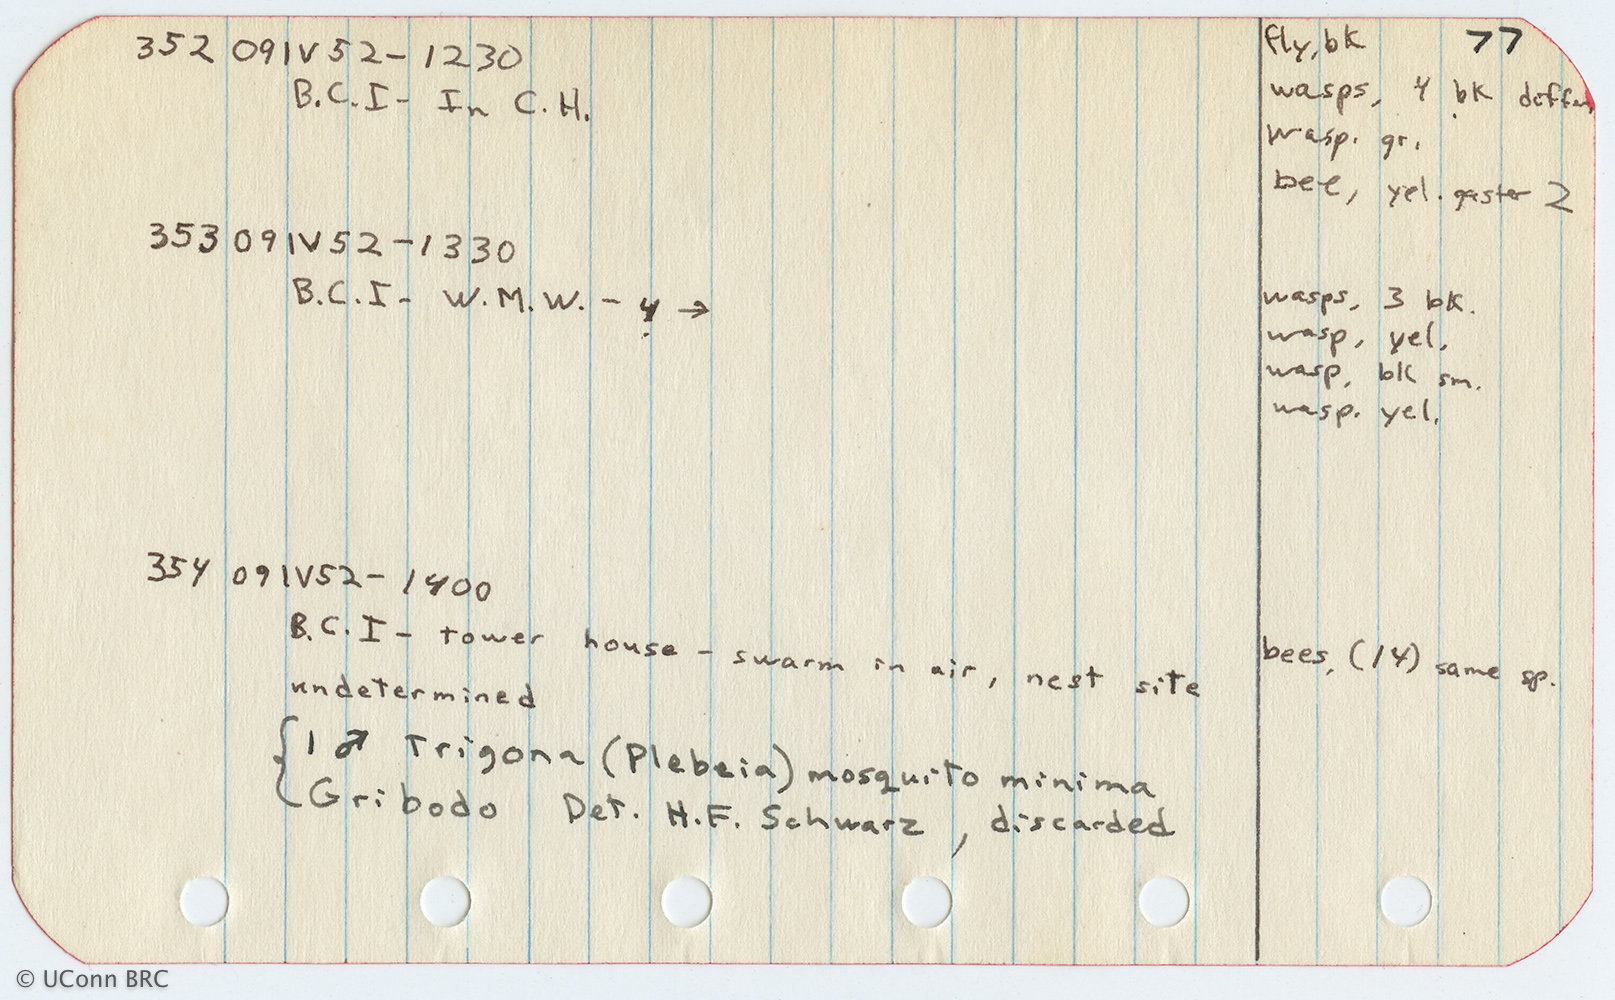 77
352 09IV52-1230 fly, bk
B.C.I- In C.H. wasps, 4 bk differ
wasp. gr.
bee, yel. gaster 2
353 09IV52-1330
B.C.I- W.M.W. - 4 → wasps, 3 bk.
wasp, yel.
wasp, bk sm.
wasp. yel.
354 09IV52-1400
B.C.I- tower house - swarm in air, nest site bees, (14) same sp.
undetermined
{1 ♂ Trigona (Plebeia) mosquito minima
Gribodo Det. H.F. Schwarz, discarded
© UConn BRC